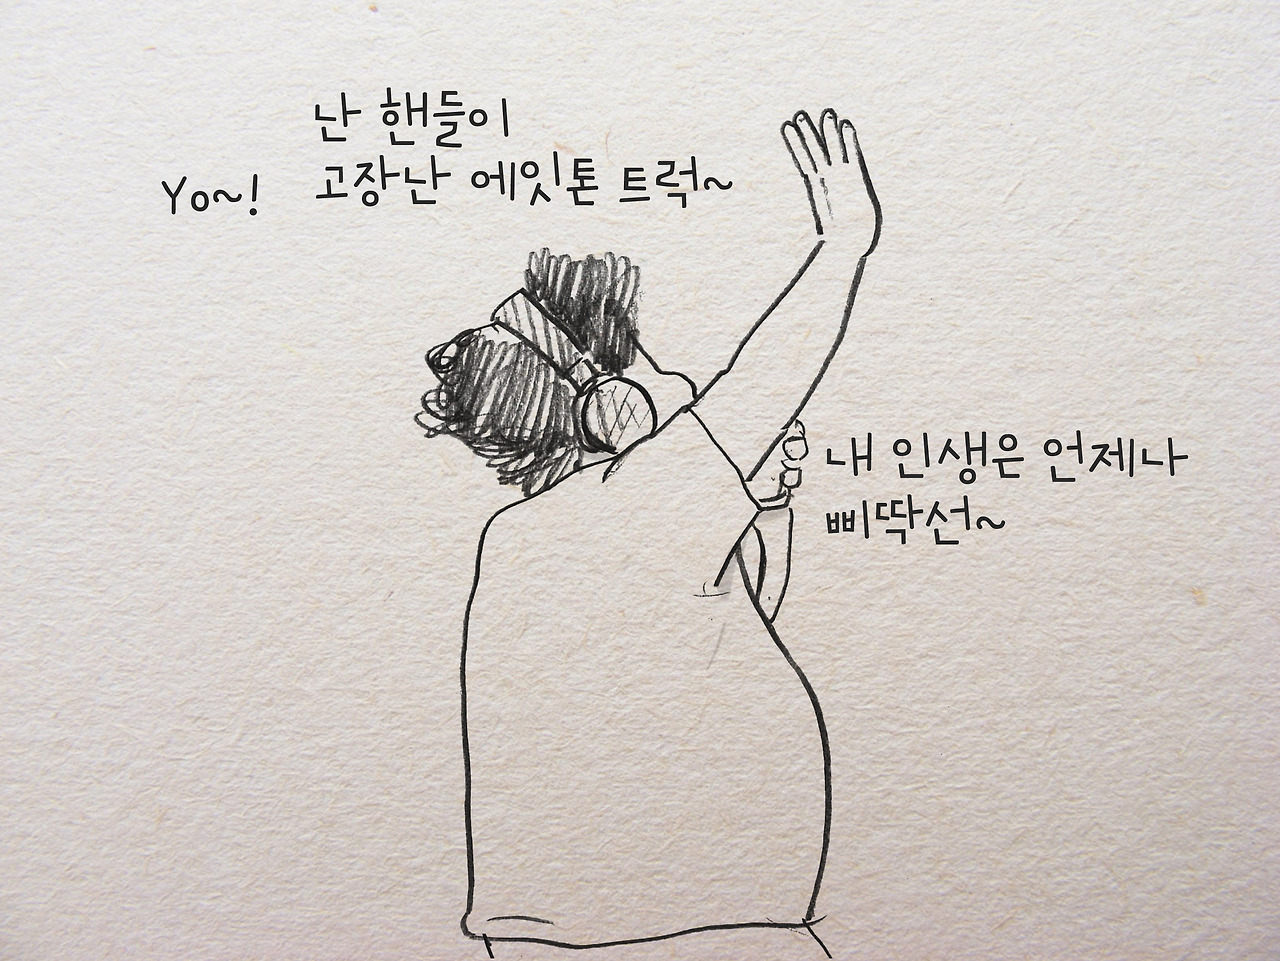 난 핸들이
Yo~! 고장난 에잇톤 트럭~
내 인생은 언제나
삐딱선~